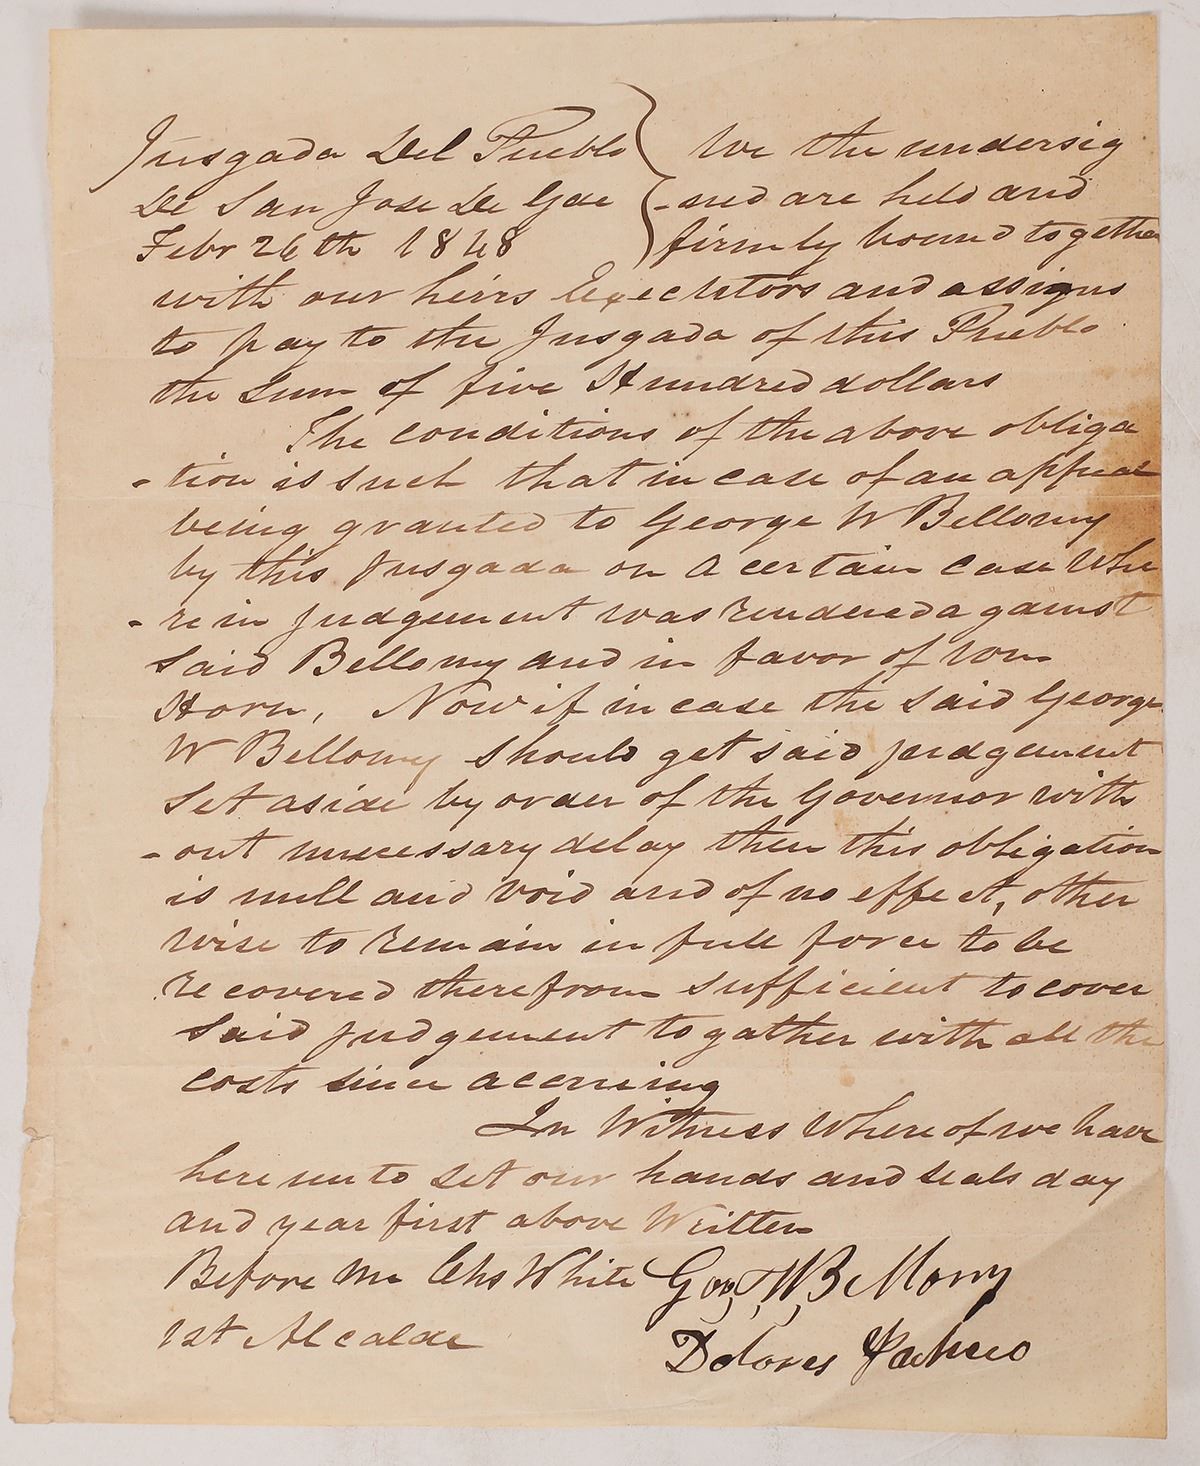 Jusgada Del Pueblo
De San Jose De Gde
Febr 26th 1848
We the undersig
-ned are held and
firmly bound together
with our heirs Executors and assigns
to pay to the Jusgada of this Pueblo
the Sum of five Hundred dollars
The conditions of the above obliga
-tion is such that in case of an appeal
being granted to George W Bellomy
by this Jusgada on a certain case Whe
-rein judgement was rendered against
Said Bellomy and in favor of Wm
Horn, Now if in case the said George
W Bellomy should get said judgement
Set aside by order of the Governor with
-out unnecessary delay then this obligation
is null and void and of no effect, other
wise to remain in full force to be
recovered therefrom sufficient to cover
Said judgement togather with all the
costs since accruing
In Witness Where of we have
here unto set our hands and seals day
and year first above Written
Before me Chs White
1st Alcalde
Geo, W, Bellomy
Dolores Pacheco